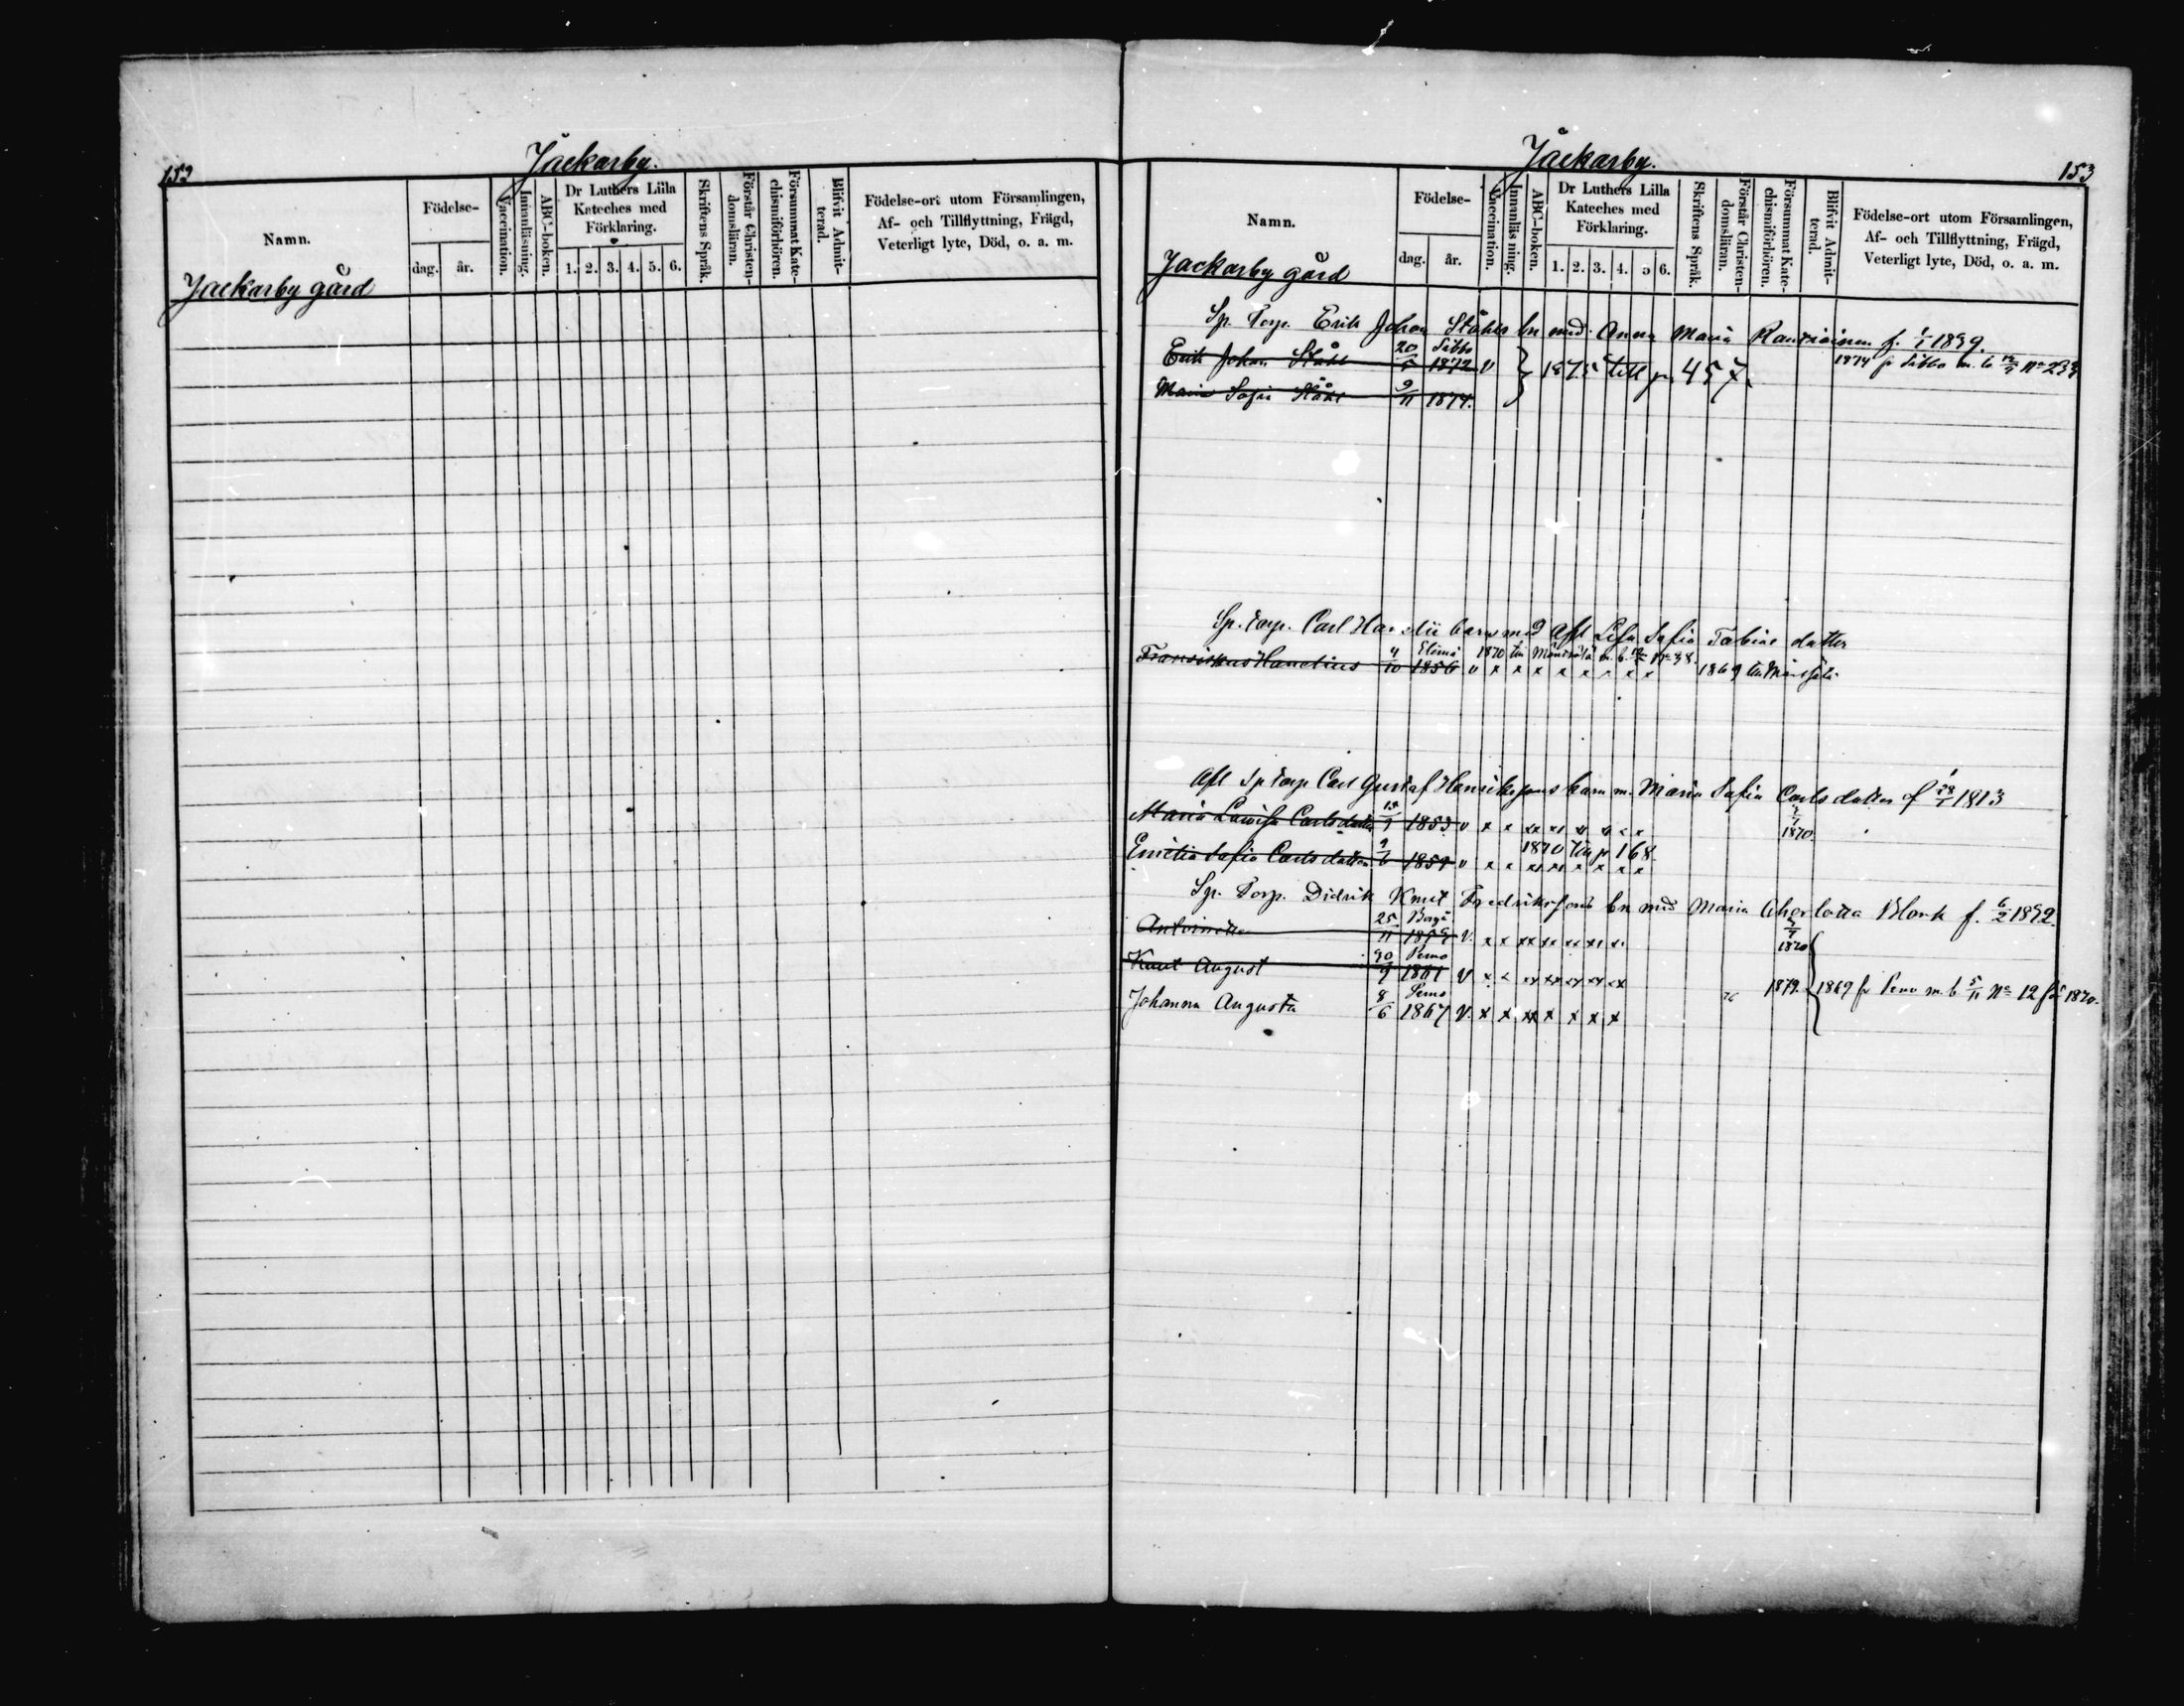 153
Jackarby.
Namn.
Födelse-
dag. år.
Vaccination.
Innanläsning.
ABC-boken.
Dr Luthers Lilla
Kateches med
Förklaring.
1. 2. 3. 4. 5. 6.
Skriftens Språk.
Förstår Christen-
domsläran.
Försummat Kate-
chismiförhören.
Blifvit Admit-
terad.
Födelse-ort utom Församlingen,
Af- och Tillflyttning, Frägd,
Veterligt lyte, Död, o. a. m.
Jackarby gård
Jackarby.
153
Namn.
Födelse-
dag. år.
Vaccination.
Innanläsning.
ABC-boken.
Dr Luthers Lilla
Kateches med
Förklaring.
1. 2. 3. 4. 5 6.
Skriftens Språk.
Förstår Christen-
domsläran.
Försummat Kate-
chismiförhören.
Blifvit Admit-
terad.
Födelse-ort utom Församlingen,
Af- och Tillflyttning, Frägd,
Veterligt lyte, Död, o. a. m.
Jackarby gård
Sp. Torp. Erik Johan Ståhls bn med Anna Maria f. 1/1 1839.
Erik Johan Ståhl 20/5 Sibbo 1872 v } 1875 till p. 457. 1874 fr Sibbo m. b.
Maria Sofia Ståhl 9/11 1874.
Sp. torp. Carl barn med Afl Lisa Sofia Tobias datter
Fransiskus 4/10 Elimä 1856 v x x x x x x x x 1870 till Mäntsälä m. b. 1869 till Mäntsälä
Afl Sp torp Carl Gustaf Henrikssons barn m. Maria Sofia Carls datter f 28/1 1813
Maria Lovisa Carlsdatter 1853 v x x xx xx xx xx x x 1870.
Emelia Sofia Carls datter 9/6 1859 v x x xx xx x x x x 1870 till p 168.
Sp. Torp. Didrik Knut Fredrikssons bn med Maria Charlotta Blonk f. 6/2 1832.
Antoinette 25/11 Borgå 1854 v. x x xx xx xx xx xx 1870
Knut August 30/9 Perno 1861 v x x xx xx xx xx xx
Johanna Augusta 8/6 Perno 1867 v. x x xx x x x x 1879. 1869 fr Perno m. b 5/11 No 12 för 1870.